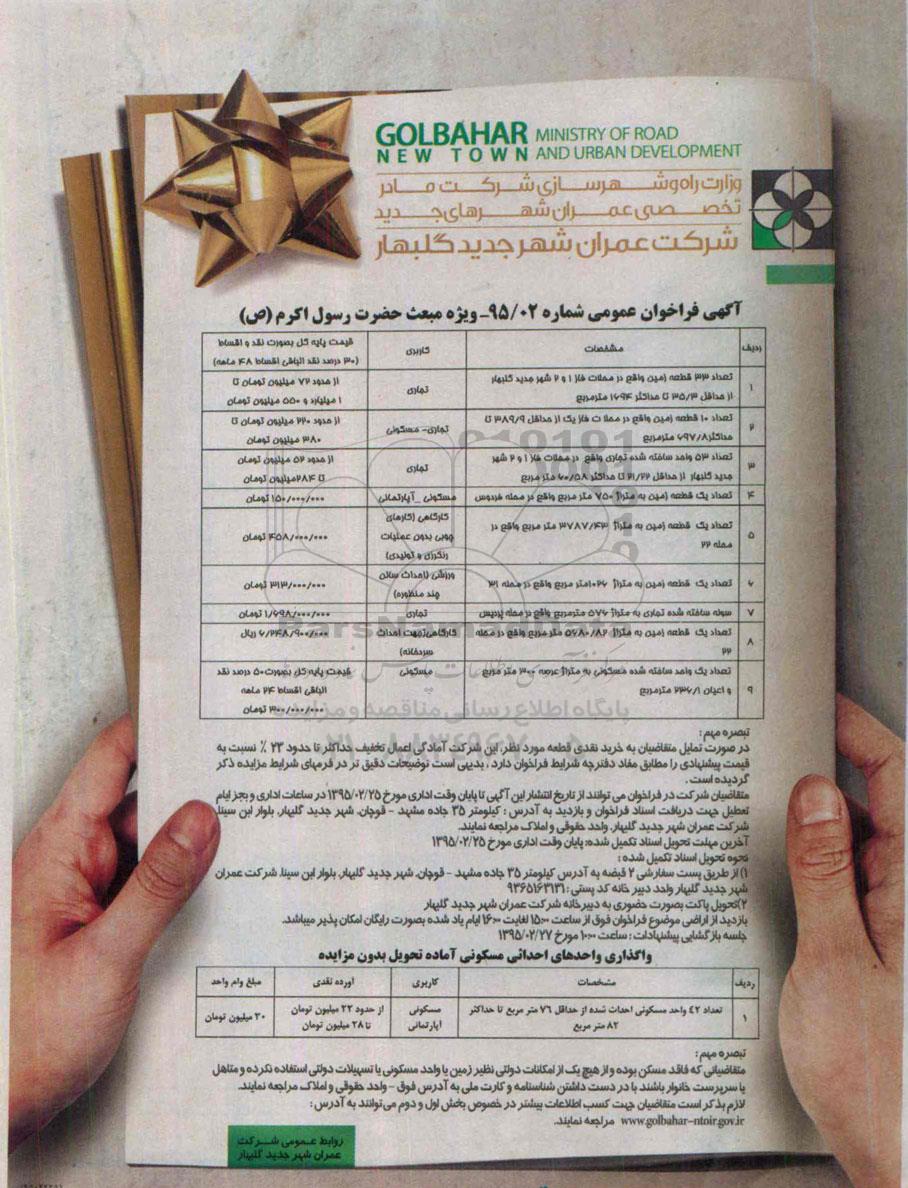 GOLBAHAR MINISTRY OF ROAD
NEW TOWN AND URBAN DEVELOPMENT
وزارت راه و شهرسازی شرکت مادر
تخصصی عمران شهرهای جدید
شرکت عمران شهر جدید گلبهار
آگهی فراخوان عمومی شماره ۹۵/۰۲ـ ویژه مبعث حضرت رسول اکرم (ص)
ردیف مشخصات کاربری قیمت پایه کل بصورت نقد و اقساط
(۳۰ درصد نقد الباقی اقساط ۴۸ ماهه)
۱ تعداد ۳۳ قطعه زمین واقع در محلات فاز ۱ و ۲ شهر جدید گلبهار تجاری از حدود ۷۲ میلیون تومان تا
از حداقل ۳۵/۳ تا حداکثر ۱۶۹۴ مترمربع ۱ میلیارد و ۵۵۰ میلیون تومان
۲ تعداد ۱۰ قطعه زمین واقع در محلات فاز یک از حداقل ۳۸۹/۹ تا تجاری- مسکونی از حدود ۲۲۰ میلیون تومان تا
حداکثر ۶۹۷/۸ مترمربع ۳۸۰ میلیون تومان
۳ تعداد ۵۳ واحد ساخته شده تجاری واقع در محلات فاز ۱ و ۲ شهر تجاری از حدود ۵۲ میلیون تومان
جدید گلبهار از حداقل ۲۱/۲۲ تا حداکثر ۶۰/۵۸ متر مربع تا ۲۸۴ میلیون تومان
۴ تعداد یک قطعه زمین به متراژ ۷۵۰ متر مربع واقع در محله فردوس مسکونی _آپارتمانی ۱۵۰/۰۰۰/۰۰۰ تومان
۵ تعداد یک قطعه زمین به متراژ ۳۷۸۷/۴۳ متر مربع واقع در محله ۲۲ کارگاهی (کارهای چوبی بدون عملیات رنگرزی و تولیدی) ۴۵۸/۰۰۰/۰۰۰ تومان
۶ تعداد یک قطعه زمین به متراژ ۱۰۲۶متر مربع واقع در محله ۳۱ ورزشی (احداث سالن چند منظوره) ۳۱۳/۰۰۰/۰۰۰ تومان
۷ سوله ساخته شده تجاری به متراژ ۵۷۶ مترمربع واقع در محله پردیس تجاری ۱/۶۹۸/۰۰۰/۰۰۰ تومان
۸ تعداد یک قطعه زمین به متراژ ۵۶۸۰/۸۲ متر مربع واقع در محله ۲۲ کارگاهی(جهت احداث سردخانه) ۶/۲۴۸/۹۰۰/۰۰۰ ریال
۹ تعداد یک واحد ساخته شده مسکونی به متراژ عرصه ۳۰۰ متر مربع مسکونی قیمت پایه کل بصورت۵۰ درصد نقد
و اعیان ۲۳۶/۱ مترمربع الباقی اقساط ۲۴ ماهه
۳۰۰/۰۰۰/۰۰۰ تومان
تبصره مهم :
در صورت تمایل متقاضیان به خرید نقدی قطعه مورد نظر، این شرکت آمادگی اعمال تخفیف حداکثر تا حدود ۲۳ ٪ نسبت به
قیمت پیشنهادی را مطابق مفاد دفترچه شرایط فراخوان دارد ، بدیهی است توضیحات دقیق تر در فرمهای شرایط مزایده ذکر
گردیده است .
متقاضیان شرکت در فراخوان می توانند از تاریخ انتشار این آگهی تا پایان وقت اداری مورخ ۱۳۹۵/۰۲/۲۵ در ساعات اداری و بجز ایام
تعطیل جهت دریافت اسناد فراخوان و بازدید به آدرس : کیلومتر ۳۵ جاده مشهد - قوچان، شهر جدید گلبهار، بلوار ابن سینا،
شرکت عمران شهر جدید گلبهار، واحد حقوقی و املاک مراجعه نمایند.
آخرین مهلت تحویل اسناد تکمیل شده: پایان وقت اداری مورخ ۱۳۹۵/۰۲/۲۵
نحوه تحویل اسناد تکمیل شده :
۱) از طریق پست سفارشی ۲ قبضه به آدرس کیلومتر ۳۵ جاده مشهد - قوچان، شهر جدید گلبهار، بلوار ابن سینا، شرکت عمران
شهر جدید گلبهار واحد دبیر خانه کد پستی : ۹۳۶۵۱۶۳۱۳۱
۲)تحویل پاکت بصورت حضوری به دبیرخانه شرکت عمران شهر جدید گلبهار
بازدید از اراضی موضوع فراخوان فوق از ساعت ۱۵:۰۰ لغایت ۱۶:۰۰ ایام یاد شده بصورت رایگان امکان پذیر میباشد.
جلسه بازگشایی پیشنهادات : ساعت ۱۰:۰۰ مورخ ۱۳۹۵/۰۲/۲۷
واگذاری واحدهای احداثی مسکونی آماده تحویل بدون مزایده
ردیف مشخصات کاربری آورده نقدی مبلغ وام واحد
۱ تعداد ۴۲ واحد مسکونی احداث شده از حداقل ۷۶ متر مربع تا حداکثر مسکونی از حدود ۲۲ میلیون تومان ۳۰ میلیون تومان
۸۲ متر مربع آپارتمانی تا ۲۸ میلیون تومان
تبصره مهم :
متقاضیانی که فاقد مسکن بوده و از هیچ یک از امکانات دولتی نظیر زمین یا واحد مسکونی یا تسهیلات دولتی استفاده نکرده و متاهل
یا سرپرست خانوار باشند با در دست داشتن شناسنامه و کارت ملی به آدرس فوق - واحد حقوقی و املاک مراجعه نمایند.
لازم بذکر است متقاضیان جهت کسب اطلاعات بیشتر در خصوص بخش اول و دوم می‌توانند به آدرس :
www.golbahar-ntoir.gov.ir مراجعه نمایند.
روابط عمومی شرکت
عمران شهر جدید گلبهار
ParsNamadData
پایگاه اطلاع رسانی مناقصه و مزایده